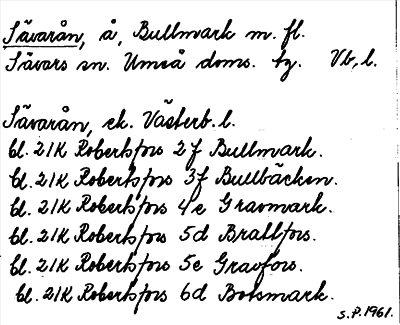 Sävarån, å, Bullmark m. fl.
Sävars sn. Umeå doms. tg. Vb. l.
Sävarån, ek. Västerb. l.
bl. 21K Robertsfors 2f Bullmark.
bl. 21K Robertsfors 3f Bullbäcken.
bl. 21K Robertsfors 4e Gravmark.
bl. 21K Robertsfors 5d Brattfors.
bl. 21K Robertsfors 5e Gravfors.
bl. 21K Robertsfors 6d Botsmark.
S.P. 1961.